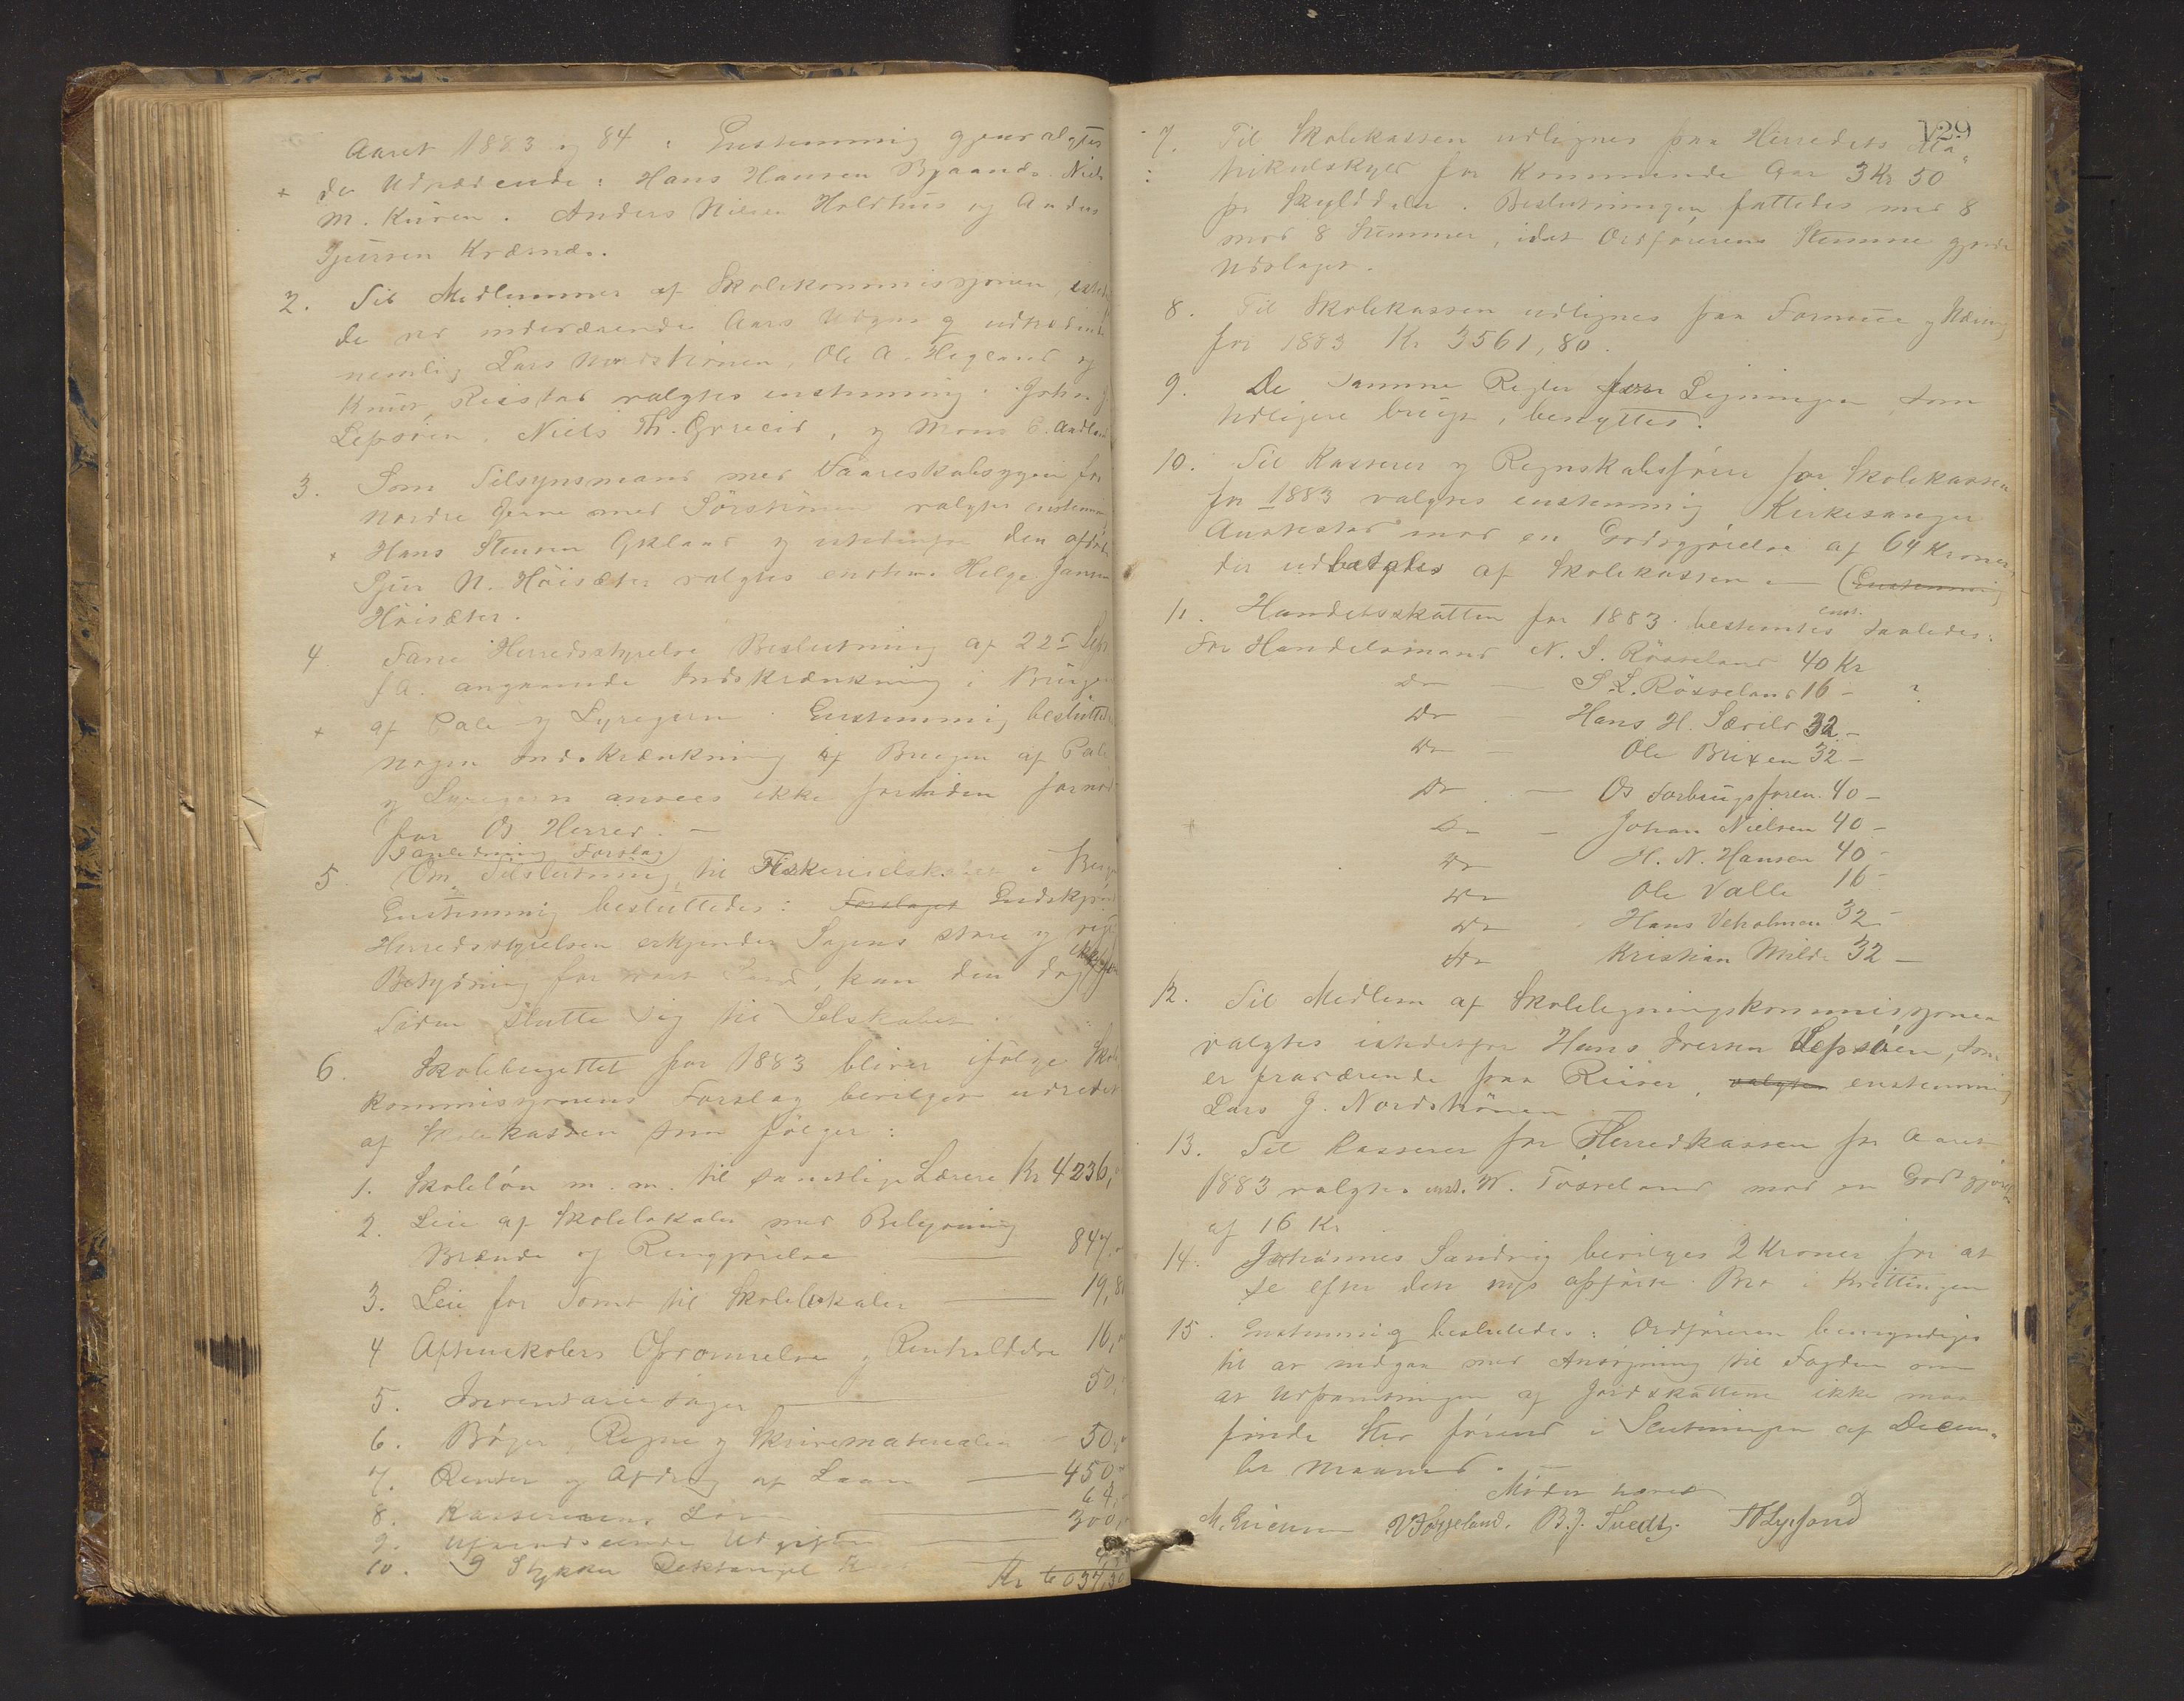 Aaret 1883 og 84: Enstemmig gjenvalgtes
de Udtrædende: Hans Hansen Bjaanæs. Niels
M. Kuven. Anders Nilsen Holdhus og Anders
Gjersen
2. Til Medlemmer af Skolekommissjonen istedetf
de ved indeværende Aars Udgang udtrædende
nemlig Lars Nordstrønen, Ole A. Hegland og
Knut Røistad valgtes enstemmig. John J.
Lepsøen. Niels Th. , og Mons C.
3. Som Tilsynsmand med Faareskabsygen for
nordre med Sørstrønen valgtes enstemmig
Hans Stensen og istedenfor den afdøde
Gjer N. Høisæter valgtes enstem. Helge Jansen
Høisæter.
4. Fane Herredsstyrelse Beslutning af 22de Sept
f.A. angaaende Indskrænkning i Brugen
af Pale og Lyregarn. Enstemmig besluttedes
nogen Indskrænkning af Brugen af Pale
og Lyregarn ansees ikke fortiden fornød
for Os Herred. —
I anledning Forslag
5 Om Tilslutning til Fiskeriselskabet i Bergen
Enstemmig besluttedes: Forslaget Endskjønt
Herredsstyrelsen erkjender Sagens store og vigt
Betydning for vort Land, kan den dog ikke for
Tiden slutte sig til Selskabet.
6. Skolebugettet for 1883 bliver ifølge Skole
kommissjonens Forslag bevilget udredet
af Skolekassen som følger:
1. Skoleløn m. m. til samtlige Lærere Kr 4236,
2. Leie af Skolelokaler med Belysning
Brænde og Rengjørelse — 847,
3. Leie for Tomt til Skolelokaler — 19,80
4 Aftenskolers Oprømelse og Renholdelse 16,
5. Inventariesager — 50,
6. Bøger, Regne og Skrivematerialer — 50,
7. Renter og Afdrag af Laan — 450
8. Kassererens Løn — 64,
9. Uforudseende Udgifter — 300,
10. 9 Stykker
Kr 6037,30
129
7. Til Skolekassen udlignes paa Herredets Ma-
trikulskyld for Kommende Aar 3 Kr 50
pr Skylddaler. Beslutningen fattedes med 8
mod 8 Stemmer, idet Ordførerens Stemme gjorde
Udslaget.
8. Til Skolekassen udlignes paa Formue og Næring
for 1883 Kr 3561,80.
9. De samme Regler for Ligningen som
tidligere brugt, benyttes.
10. Til Kasserer og Regnskabsfører for Skolekassen
for 1883 valgtes enstemmig Kirkesanger
Austestad mod en Godtgjørelse af 64 Kroner,
der udbetales af Skolekassen. — (Enstemmig
11. Handelsskatten for 1883 bestemtes enst. saaledes:
For Handelsmand N. S. Røsseland 40 Kr
Do — S. L. Røsseland 16 — ?
Do — Hans H. Særvold 32 —
Do — Ole Brixen 32 —
Do — Os Forbrugsforen. 40 —
Do — Johan Nielsen 40 —
Do H. N. Hansen 40 —
Do Ole Valle 16 —
Do Hans Vebolmen 32 —
Do Kristian Milde 32 —
12. Til Medlem af Skoleligningskommissjonen
valgtes istedetfor Hans Iversen Lepsøen, som
er fraværende paa Reiser, valgtes enstemmig
Lars J. Nordstrønen
13. Til Kasserer for Herredkassen for Aaret
1883 valgtes enst. W. Tøsseland mod en Godtgjørelse
af 16 Kr
14. Johannes Sandvig bevilges 2 Kroner for at
se efter den nys opførte Bro i
15. Enstemmig besluttedes: Ordføreren bemyndiges
til at indgaa med Ansøgning til Fogden om
at Udpantningen af Jordskatten ikke maa
finde Sted førend i Slutningen af Decem-
ber Maaned. —
Mødet hævet
M. V. Høggeland. B. J. Tvedt.